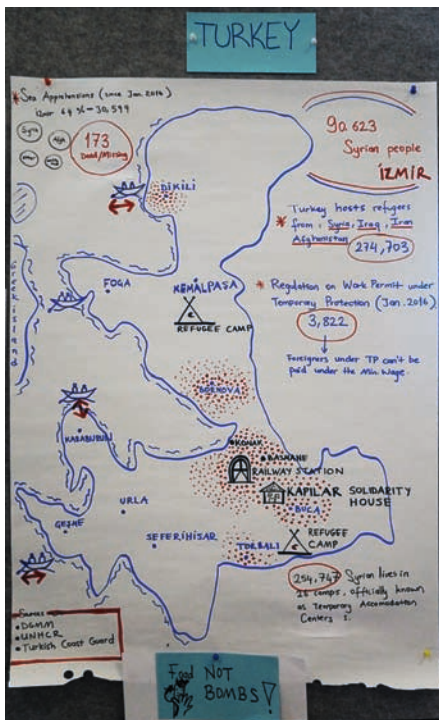 TURKEY
* Sea Apprehensions (since Jan. 2016)
İzmir 64%-30,599
Syria
Afgh
173
Dead/Missing
90.623
Syrian people
İZMİR
DİKİLİ
* Turkey hosts refugees
from: Syria, Iraq, Iran
Afghanistan
274,703
FOÇA
KEMALPAŞA
REFUGEE CAMP
* Regulation on Work Permit under
Temporary Protection (Jan. 2016)
3,822
Foreigners under TP can't be
paid under the Min. Wage.
BORNOVA
KARABURUN
KONAK
BASMANE
RAILWAY STATION
KAPILAR SOLIDARITY
HOUSE
BUCA
URLA
ÇEŞME
SEFERİHİSAR
TORBALI
REFUGEE
CAMP
254,747 Syrian lives in
26 camps, officially known
as Temporary Accomodation
Centers
Sources
• DGMM
• UNHCR
• Turkish Coast Guard
Food NOT
BOMBS!